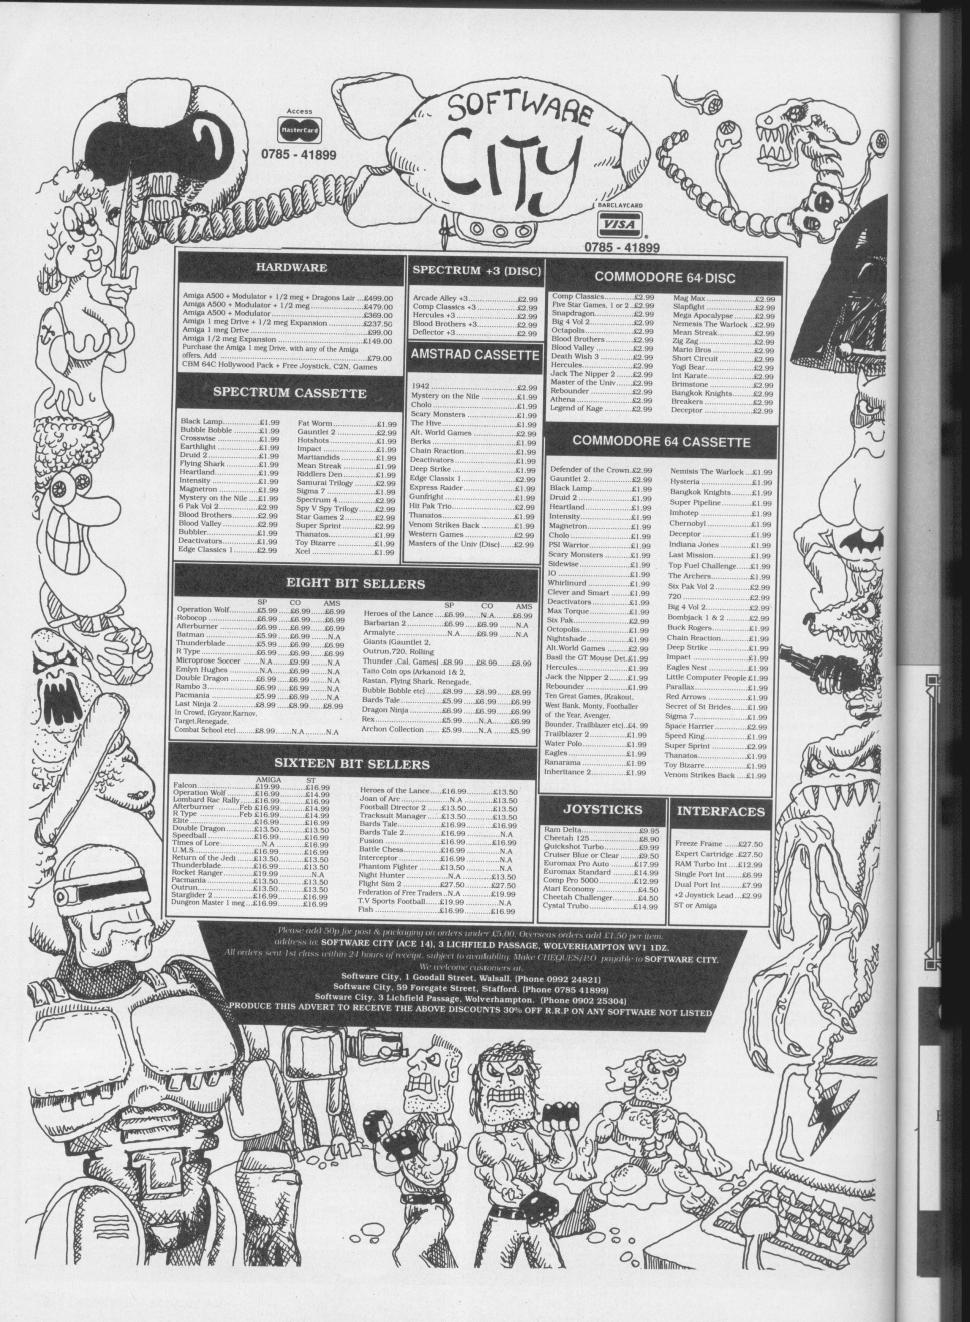 SOFTWARE
CITY
Access
MasterCard
0785 - 41899
BARCLAYCARD
VISA
0785 - 41899
HARDWARE
Amiga A500 + Modulator + 1/2 meg + Dragons Lair ...£499.00
Amiga A500 + Modulator + 1/2 meg ...£479.00
Amiga A500 + Modulator ...£369.00
Amiga 1 meg Drive + 1/2 meg Expansion ...£237.50
Amiga 1 meg Drive ...£99.00
Amiga 1/2 meg Expansion ...£149.00
Purchase the Amiga 1 meg Drive, with any of the Amiga
offers, Add ...£79.00
CBM 64C Hollywood Pack + Free Joystick, C2N, Games
SPECTRUM CASSETTE
Black Lamp...£1.99
Bubble Bobble ...£1.99
Crosswise ...£1.99
Earthlight ...£1.99
Druid 2 ...£1.99
Flying Shark ...£1.99
Heartland...£1.99
Intensity ...£1.99
Magnetron ...£1.99
Mystery on the Nile ...£1.99
6 Pak Vol 2...£2.99
Blood Brothers...£2.99
Blood Valley ...£2.99
Bubbler...£1.99
Deactivators...£1.99
Edge Classics 1...£2.99
Fat Worm ...£1.99
Gauntlet 2 ...£2.99
Hotshots ...£1.99
Impact ...£1.99
Martianoids ...£1.99
Mean Streak ...£1.99
Riddlers Den...£1.99
Samurai Trilogy ...£2.99
Sigma 7 ...£1.99
Spectrum 4...£2.99
Spy V Spy Trilogy...£2.99
Star Games 2...£2.99
Super Sprint ...£2.99
Thanatos...£1.99
Toy Bizarre ...£1.99
Xcel ...£1.99
SPECTRUM +3 (DISC)
Arcade Alley +3...£2.99
Comp Classics +3...£2.99
Hercules +3...£2.99
Blood Brothers +3...£2.99
Deflector +3...£2.99
AMSTRAD CASSETTE
1942 ...£2.99
Mystery on the Nile ...£1.99
Cholo ...£1.99
Scary Monsters ...£1.99
The Hive ...£1.99
Alt. World Games ...£2.99
Berks ...£1.99
Chain Reaction...£1.99
Deactivators ...£1.99
Deep Strike ...£1.99
Edge Classix 1 ...£2.99
Express Raider ...£1.99
Gunfright ...£1.99
Hit Pak Trio...£2.99
Thanatos...£1.99
Venom Strikes Back ...£1.99
Western Games ...£2.99
Masters of the Univ (Disc)...£2.99
COMMODORE 64 DISC
Comp Classics...£2.99
Five Star Games, 1 or 2 ..£2.99
Snapdragon...£2.99
Big 4 Vol 2...£2.99
Octapolis...£2.99
Blood Brothers ...£2.99
Blood Valley ...£2.99
Death Wish 3 ...£2.99
Hercules...£2.99
Jack The Nipper 2 ...£2.99
Master of the Univ...£2.99
Rebounder ...£2.99
Athena ...£2.99
Legend of Kage ...£2.99
Mag Max ...£2.99
Slapfight ...£2.99
Mega Apocalypse ...£2.99
Nemesis The Warlock ..£2.99
Mean Streak ...£2.99
Zig Zag ...£2.99
Mario Bros ...£2.99
Short Circuit ...£2.99
Yogi Bear...£2.99
Int Karate ...£2.99
Brimstone ...£2.99
Bangkok Knights...£2.99
Breakers ...£2.99
Deceptor ...£2.99
COMMODORE 64 CASSETTE
Defender of the Crown..£2.99
Gauntlet 2...£2.99
Black Lamp...£1.99
Druid 2 ...£1.99
Heartland...£1.99
Intensity...£1.99
Magnetron...£1.99
Cholo ...£1.99
PSI Warrior...£1.99
Scary Monsters ...£1.99
Sidewise ...£1.99
IO ...£1.99
Whirlnurd ...£1.99
Clever and Smart ...£1.99
Deactivators...£1.99
Max Torque...£1.99
Six Pak...£2.99
Octopolis...£1.99
Nightshade...£1.99
Alt.World Games ...£2.99
Basil the GT Mouse Det..£1.99
Hercules...£1.99
Jack the Nipper 2 ...£1.99
Rebounder ...£1.99
Ten Great Games, (Krakout,
West Bank, Monty, Footballer
of the Year, Avenger,
Bounder, Trailblazer etc)..£4. 99
Trailblazer 2 ...£1.99
Water Polo...£1.99
Eagles...£1.99
Ranarama ...£1.99
Inheritance 2...£1.99
Nemisis The Warlock ...£1.99
Hysteria ...£1.99
Bangkok Knights...£1.99
Super Pipeline...£1.99
Imhotep ...£1.99
Chernobyl...£1.99
Deceptor ...£1.99
Indiana Jones ...£1.99
Last Mission...£1.99
Top Fuel Challenge...£1.99
The Archers...£1.99
Six Pak Vol 2 ...£2.99
720 ...£2.99
Big 4 Vol 2...£2.99
Bombjack 1 & 2 ...£2.99
Buck Rogers...£1.99
Chain Reaction...£1.99
Deep Strike ...£1.99
Impact ...£1.99
Eagles Nest ...£1.99
Little Computer People £1.99
Parallax...£1.99
Red Arrows ...£1.99
Secret of St Brides ...£1.99
Sigma 7...£1.99
Space Harrier ...£2.99
Speed King ...£1.99
Super Sprint ...£2.99
Thanatos...£1.99
Toy Bizarre...£1.99
Venom Strikes Back ...£1.99
EIGHT BIT SELLERS
SP CO AMS
Operation Wolf...£5.99...£6.99...£6.99
Robocop ...£6.99...£6.99...£6.99
Afterburner ...£6.99...£6.99...£6.99
Batman ...£5.99...£6.99...N.A
Thunderblade...£5.99...£6.99...£6.99
R Type ...£6.99...£6.99...£6.99
Microprose Soccer ...N.A...£9.99...N.A
Emlyn Hughes ...N.A...£6.99...N.A
Double Dragon ...£6.99...£6.99...N.A
Rambo 3...£6.99...£6.99...N.A
Pacmania ...£5.99...£6.99...N.A
Last Ninja 2 ...£8.99...£8.99...£8.99
In Crowd, (Gryzor,Karnov,
Target,Renegade,
Combat School etc)...£8.99...N.A...N.A
SP CO AMS
Heroes of the Lance ...£6.99...N.A...£6.99
Barbarian 2 ...£6.99...£6.99...N.A
Armalyte ...N.A...£6.99...N.A
Giants (Gauntlet 2,
Outrun,720, Rolling
Thunder ,Cal. Games) .£8.99...£8.99...£8.99
Taito Coin ops (Arkanoid 1& 2,
Rastan, Flying Shark, Renegade,
Bubble Bobble etc) ...£8.99...£8.99...£8.99
Bards Tale...£5.99...£6.99...£6.99
Dragon Ninja ...£6.99...£6.99...£6.99
Rex...£5.99...N.A...£6.99
Archon Collection ...£5.99...N.A...£5.99
SIXTEEN BIT SELLERS
AMIGA ST
Falcon...£19.99...£16.99
Operation Wolf ...£16.99...£14.99
Lombard Rac Rally...£16.99...£16.99
Afterburner ...Feb £16.99...£14.99
R Type ...Feb £16.99...£14.99
Elite ...£16.99...£16.99
Double Dragon...£13.50...£13.50
Speedball ...£16.99...£16.99
Times of Lore...N.A...£16.99
U.M.S. ...£16.99...£16.99
Return of the Jedi ...£13.50...£13.50
Thunderblade...£16.99...£13.50
Rocket Ranger ...£19.99...N.A
Pacmania...£13.50...£13.50
Outrun...£13.50...£13.50
Starglider 2 ...£16.99...£16.99
Dungeon Master 1 meg ...£16.99...£16.99
Heroes of the Lance...£16.99...£13.50
Joan of Arc ...N.A...£13.50
Football Director 2 ...£13.50...£13.50
Tracksuit Manager ...£13.50...£13.50
Bards Tale...£16.99...£16.99
Bards Tale 2...£16.99...N.A
Fusion ...£16.99...£16.99
Battle Chess...£16.99...N.A
Interceptor ...£16.99...N.A
Phantom Fighter ...£13.50...N.A
Night Hunter ...N.A...£13.50
Flight Sim 2 ...£27.50...£27.50
Federation of Free Traders ..N.A...£19.99
T.V Sports Football...£19.99...N.A
Fish ...£16.99...£16.99
JOYSTICKS
Ram Delta...£9.95
Cheetah 125 ...£8.90
Quickshot Turbo...£9.99
Cruiser Blue or Clear ...£9.50
Euromax Pro Auto ...£17.99
Euromax Standard ...£14.99
Comp Pro 5000...£12.99
Atari Economy ...£4.50
Cheetah Challenger...£4.50
Cystal Trubo...£14.99
INTERFACES
Freeze Frame ...£27.50
Expert Cartridge ..£27.50
RAM Turbo Int ...£12.99
Single Port Int ...£6.99
Dual Port Int...£7.99
+2 Joystick Lead ...£2.99
ST or Amiga
Please add 50p for post & packaging on orders under £5.00, Overseas orders add £1.50 per item.
address to: SOFTWARE CITY (ACE 14), 3 LICHFIELD PASSAGE, WOLVERHAMPTON WV1 1DZ.
All orders sent 1st class within 24 hours of receipt, subject to availablity. Make CHEQUES/P.O payable to SOFTWARE CITY.
We welcome customers at.
Software City, 1 Goodall Street, Walsall. (Phone 0992 24821)
Software City, 59 Foregate Street, Stafford. (Phone 0785 41899)
Software City, 3 Lichfield Passage, Wolverhampton. (Phone 0902 25304)
PRODUCE THIS ADVERT TO RECEIVE THE ABOVE DISCOUNTS 30% OFF R.R.P ON ANY SOFTWARE NOT LISTED